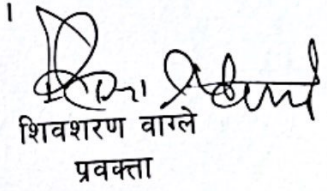 शिवशरण वाग्ले
प्रवक्ता